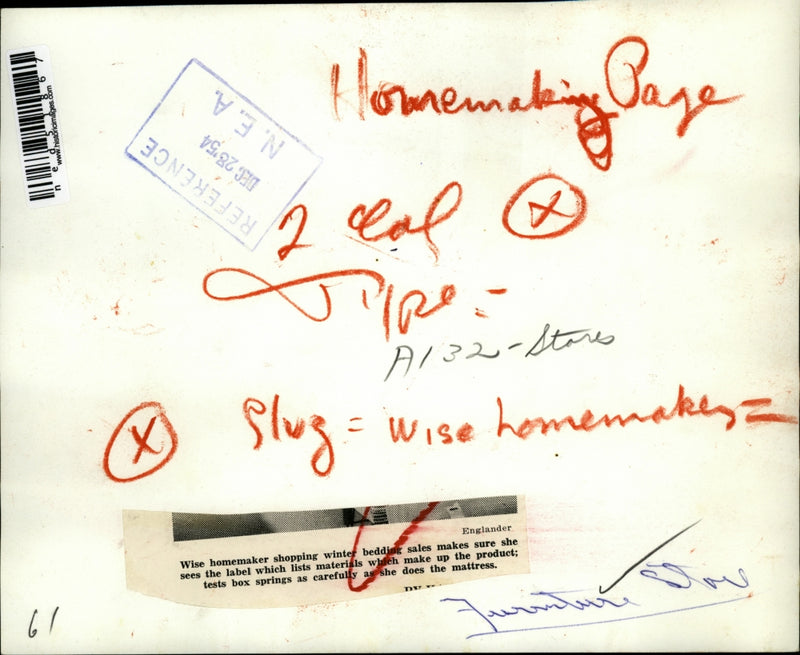 Homemaking Page
ned518867
www.historicimages.com
REFERENCE
DEC 28 '54
N. E. A.
2 Col X
Type =
A132 - Stores
X Slug = Wise homemaker =
Englander
Wise homemaker shopping winter bedding sales makes sure she
sees the label which lists materials which make up the product;
tests box springs as carefully as she does the mattress.
Furniture Store
61